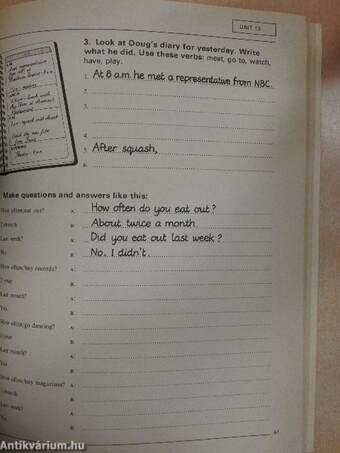 UNIT 13
3. Look at Doug's diary for yesterday. Write
what he did. Use these verbs: meet, go to, watch,
have, play.
1. At 8 a.m. he met a representative from NBC.
2.
3.
4.
5. After squash,
6.
Make questions and answers like this:
How often/eat out? A: How often do you eat out?
B: About twice a month.
Last week? A: Did you eat out last week?
No B: No. I didn't.
How often/buy records? A:
B:
Last month? A:
Yes B:
How often/go dancing? A:
B:
Last month? A:
Yes B:
How often/buy magazines? A:
B:
Last week? A:
B:
Antikvárium.hu